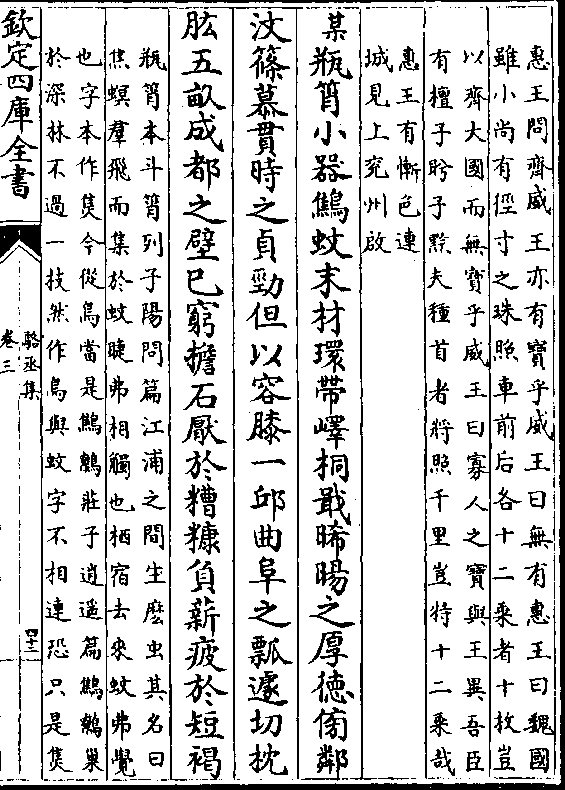 惠王問齊威王亦有寶乎威王曰無有惠王曰魏國
雖小尚有徑寸之珠照車前后各十二乘者十枚豈
以齊大國而無寶乎威王曰寡人之寶與王異吾臣
有檀子盼子黔夫種首者將照千里豈特十二乘哉
惠王有慚色連
城見上兖州啟
某瓶筲小器鷦蚊末材環帶嶧桐戢晞暘之厚徳傍鄰
汶篠慕貫時之貞勁但以容膝一邱曲阜之瓢遽切枕
肱五畝成都之壁已窮擔石厭於糟糠負薪疲於短褐
瓶筲本斗筲列子陽問篇江浦之間生麽虫其名曰
焦螟羣飛而集於蚊睫弗相觸也栖宿去來蚊弗覺
也字本作焦今從鳥當是鷦鷯莊子逍遥篇鷦鷯巢
於深林不過一枝然作鳥與蚊字不相連恐只是焦
欽定四庫全書
駱丞集
卷三
四十三